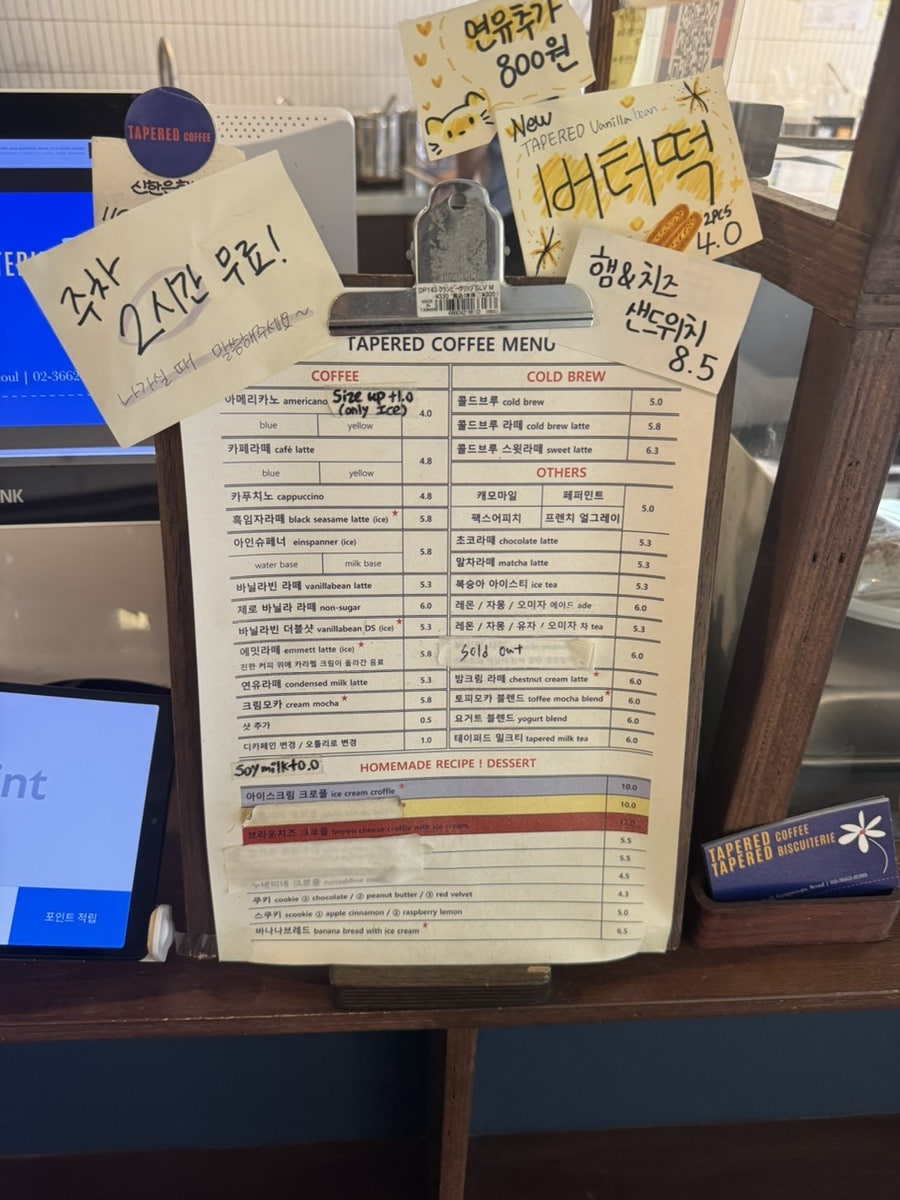 연유추가
800원
New
TAPERED Vanilla bean
버터떡
2PCS
4.0
햄&치즈
샌드위치
8.5
TAPERED COFFEE
신한은행
주차
2시간 무료!
나가실 때 말씀해주세요~
oul | 02-3662
NK
int
포인트 적립
TAPERED COFFEE MENU
COFFEE
아메리카노 americano
Size up +1.0
(only Ice)
4.0
blue yellow
카페라떼 café latte
4.8
blue yellow
카푸치노 cappuccino 4.8
흑임자라떼 black seasame latte (ice)* 5.8
아인슈페너 einspanner (ice)
5.8
water base milk base
바닐라빈 라떼 vanillabean latte 5.3
제로 바닐라 라떼 non-sugar 6.0
바닐라빈 더블샷 vanillabean DS (ice)* 5.3
에밋라떼 emmett latte (ice)*
진한 커피 위에 카라멜 크림이 올라간 음료
5.8
연유라떼 condensed milk latte 5.3
크림모카 cream mocha* 5.8
샷 추가 0.5
디카페인 변경 / 오틀리로 변경 1.0
Soymilk+0.0
COLD BREW
콜드브루 cold brew 5.0
콜드브루 라떼 cold brew latte 5.8
콜드브루 스윗라떼 sweet latte 6.3
OTHERS
캐모마일 페퍼민트
5.0
팩스어피치 프렌치 얼그레이
초코라떼 chocolate latte 5.3
말차라떼 matcha latte 5.3
복숭아 아이스티 ice tea 5.3
레몬 / 자몽 / 오미자 에이드 ade 6.0
레몬 / 자몽 / 유자 / 오미자 차 tea 5.3
Sold out 6.0
밤크림 라떼 chestnut cream latte* 6.0
토피모카 블렌드 toffee mocha blend* 6.0
요거트 블렌드 yogurt blend 6.0
테이퍼드 밀크티 tapered milk tea 6.0
HOMEMADE RECIPE ! DESSERT
아이스크림 크로플 ice cream croffle* 10.0
10.0
브라운치즈 크로플 brown cheese croffle with ice cream 12.0
5.5
5.5
4.5
쿠키 cookie ① chocolate / ② peanut butter / ③ red velvet 4.3
스쿠키 scookie ① apple cinnamon / ② raspberry lemon 5.0
바나나브레드 banana bread with ice cream* 6.5
TAPERED COFFEE
TAPERED BISCUITERIE